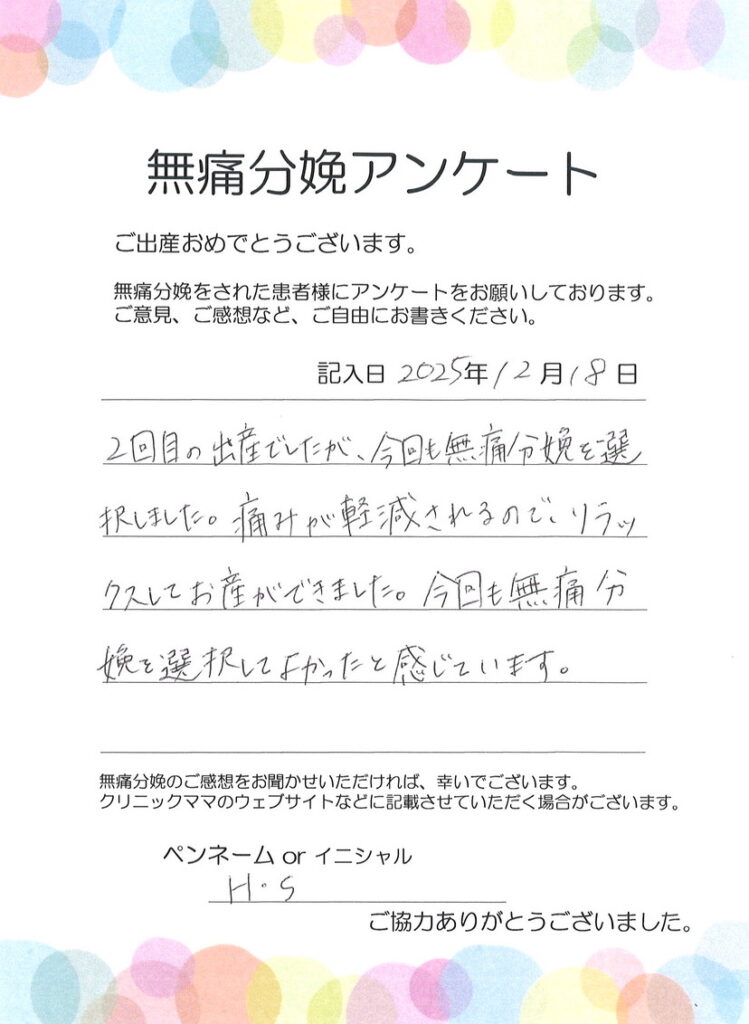 無痛分娩アンケート
ご出産おめでとうございます。
無痛分娩をされた患者様にアンケートをお願いしております。
ご意見、ご感想など、ご自由にお書きください。
記入日 2025年 12月 18日
2回目の出産でしたが、今回も無痛分娩を選
択しました。痛みが軽減されるので、リラッ
クスしてお産ができました。今回も無痛分
娩を選択してよかったと感じています。
無痛分娩のご感想をお聞かせいただければ、幸いでございます。
クリニックママのウェブサイトなどに記載させていただく場合がございます。
ペンネーム or イニシャル
H・S
ご協力ありがとうございました。